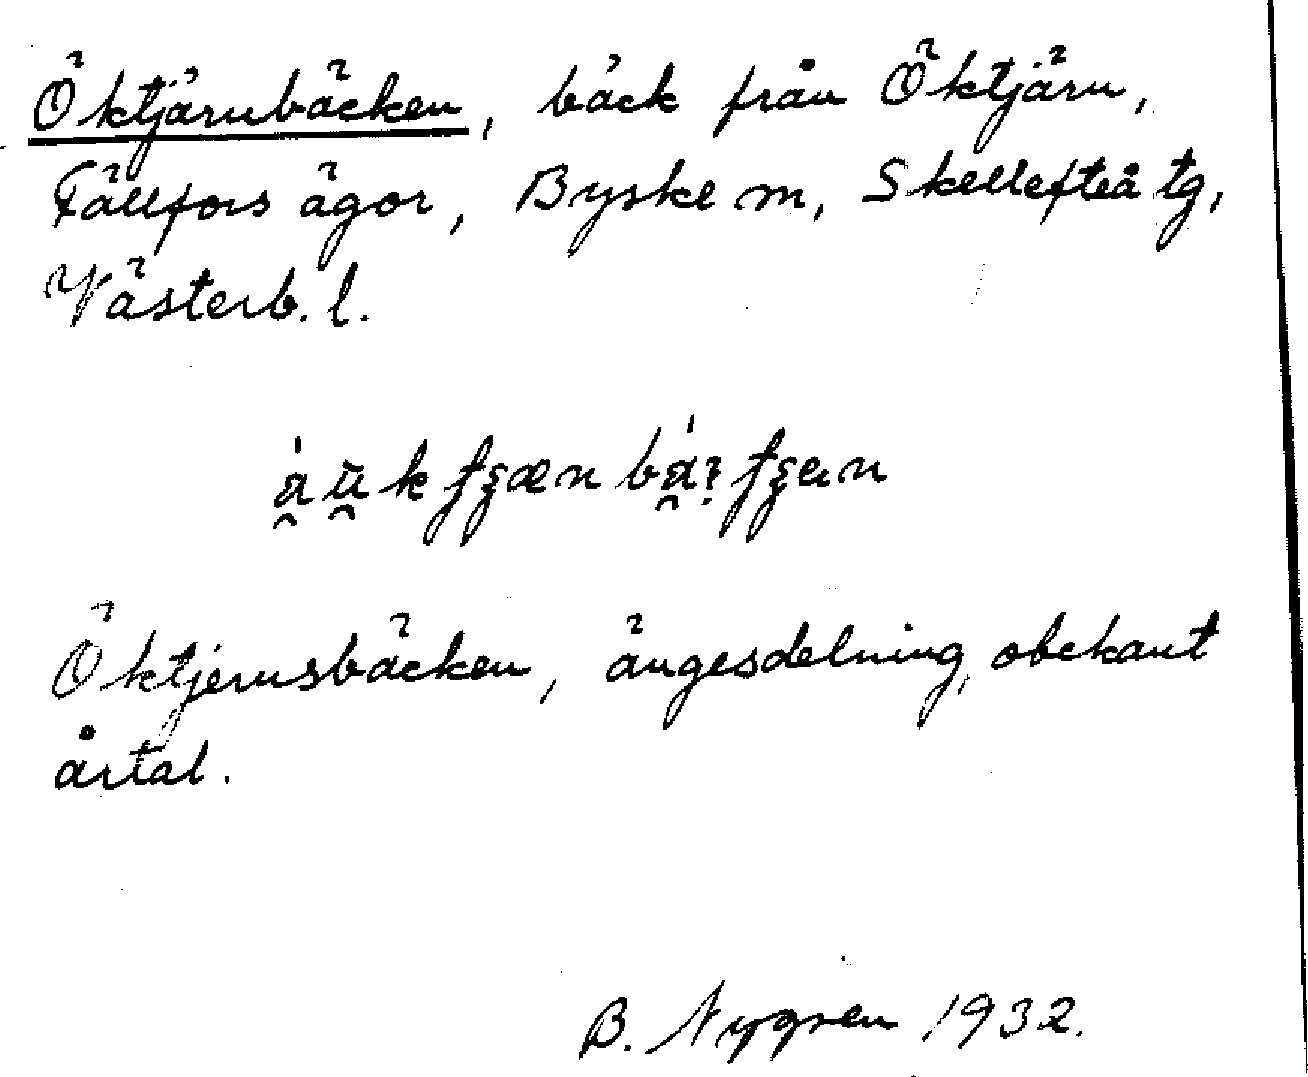 Öktjärnbäcken, bäck från Öktjärn,
Fällfors ägor, Byske sn, Skellefteå tg,
Västerb. l.
Öktjernsbäcken, ängesdelning, obekant
årtal.
B. Nygren 1932.